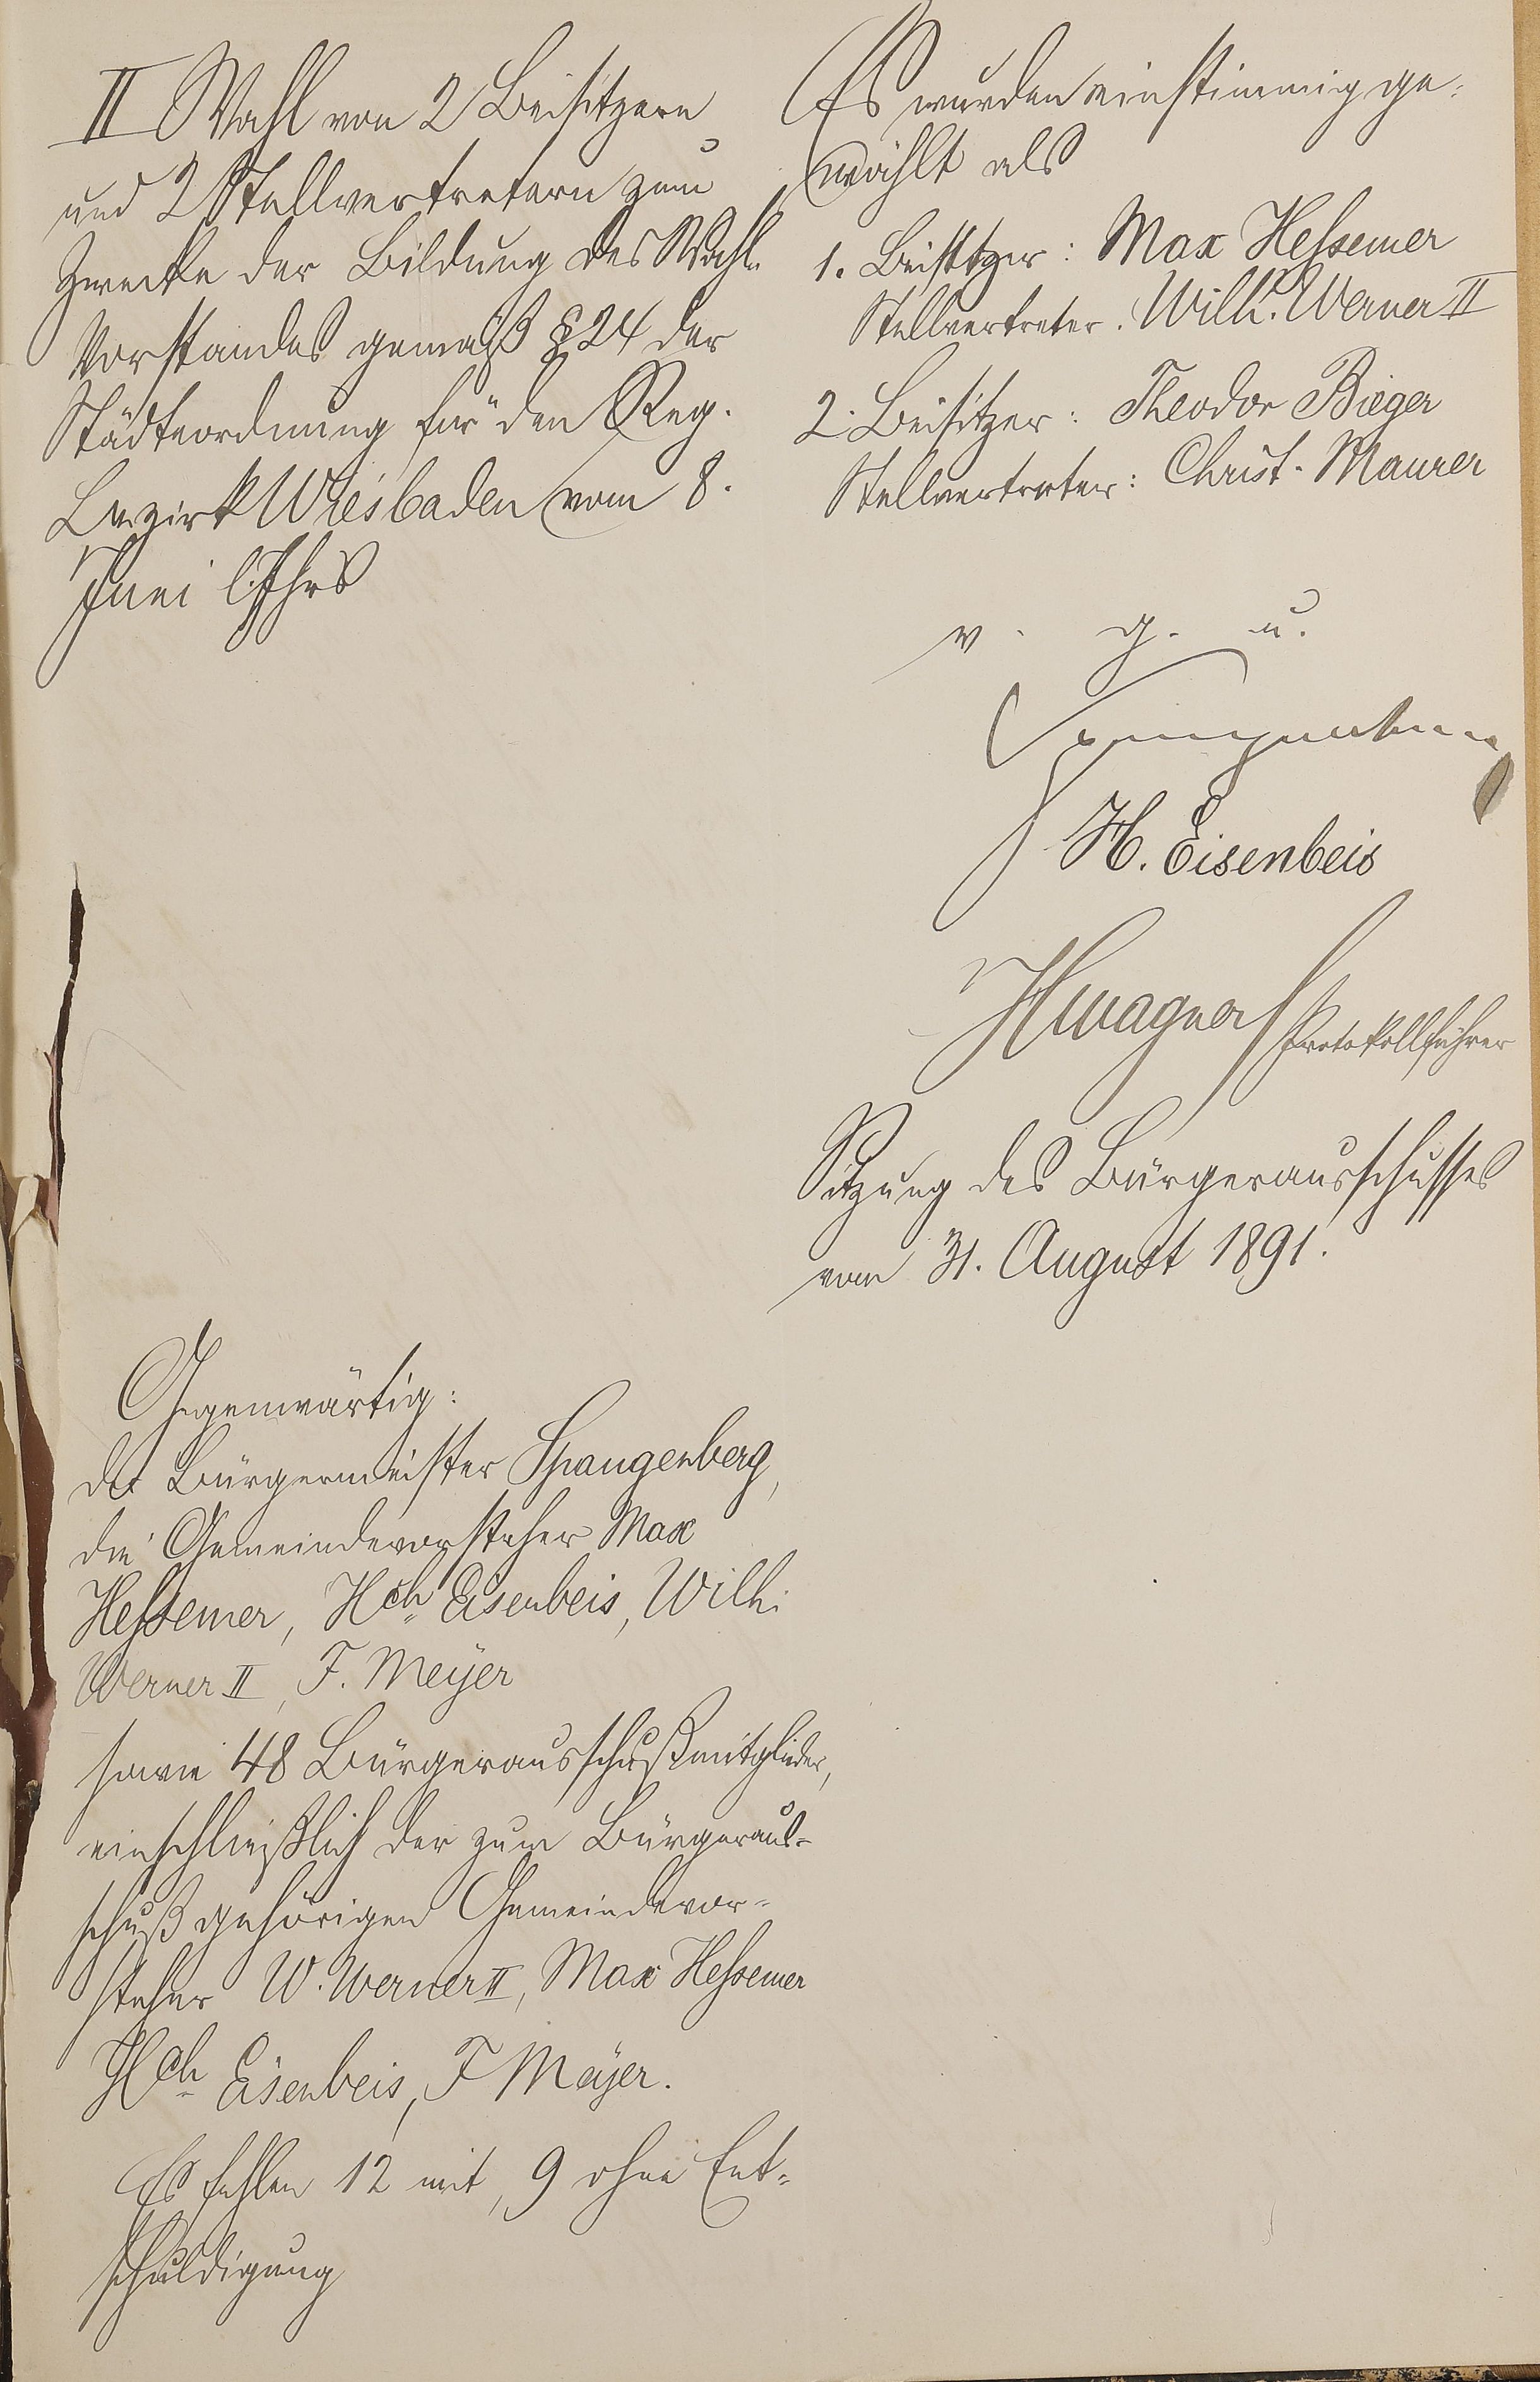 II Wahl von 2 Beisitzern
und 2 Stellvertretern zum
Zwecke der Bildung des Wahl-
Vorstandes gemäß § 24 der
Städteordnung für den Reg.
Bezirk Wiesbaden vom 8.
Juni l. Jhrs
Es wurden einstimmig ge-
wählt als
1. Beisitzer: Max Hessemer
Stellvertreter. Wilh. Werner II
2. Beisitzer: Theodor Bieger
Stellvertreter: Christ. Maurer
v. g. u.
Spangenberg
H. Eisenbeis
HWagner Protokollführer
Sitzung des Bürgerausschusses
vom 31. August 1891.
Gegenwärtig:
der Bürgermeister Spangenberg,
die Gemeindevorsteher Max
Hessemer, Hch Eisenbeis, Wilh.
Werner II, F. Meyer
sowie 48 Bürgerausschußmitglieder,
einschließlich der zum Bürgeraus-
schuß gehörigen Gemeindevor-
steher W. Werner II, Max Hessemer
Hch Eisenbeis, F Meyer.
Es fehlen 12 mit, 9 ohne Ent-
schuldigung